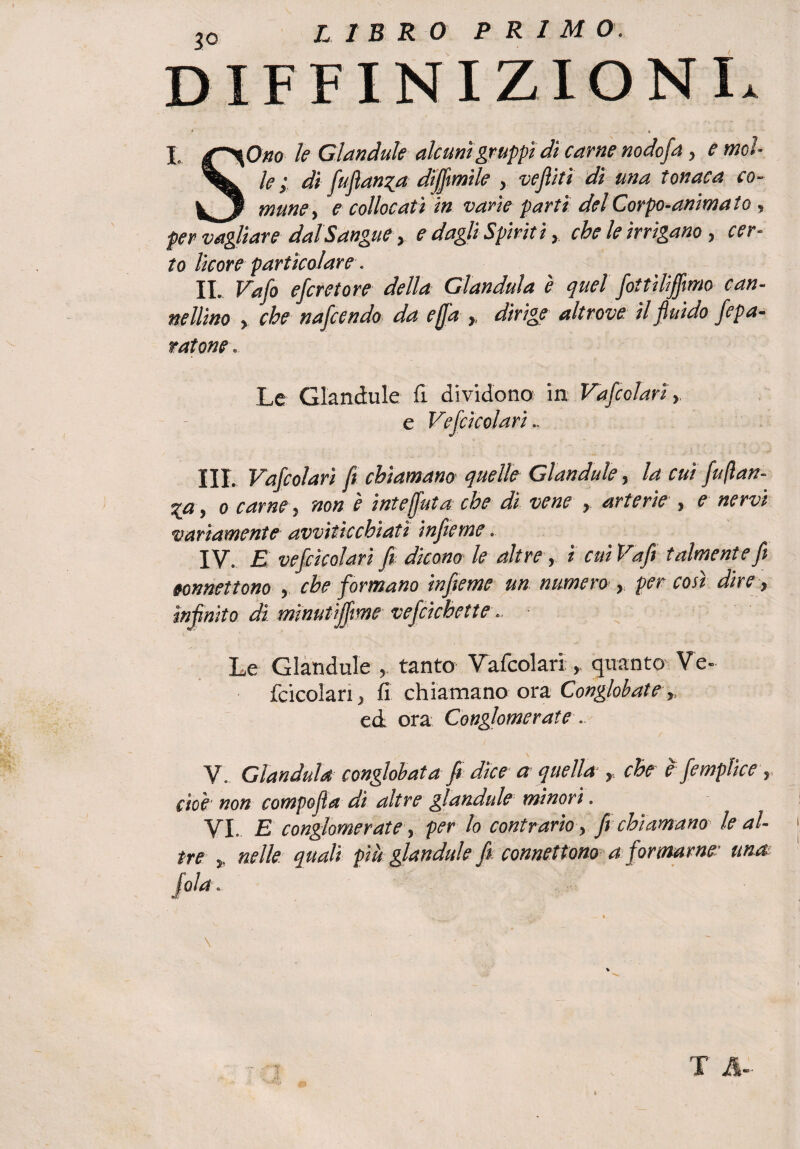 30 LIBRO PRIMO.
DIFFINIZIONI.
I. SOno le Glandule alcuni gruppi di carne nodoſa, e mol-
le; di ſuſtanza diſſimile, veſtiti di una tonaca co-
mune, e collocati in varie parti del Corpo-animato,
per vagliare dal Sangue, e dagli Spiriti, che le irrigano, cer-
to licore particolare.
II. Vaſo eſcretore della Glandula è quel ſottiliſſimo can-
nellino, che naſcendo da eſſa, dirige altrove il fluido ſepa-
ratone.
Le Glandule ſi dividono in Vaſcolari,
e Veſcicolari.
III. Vaſcolari ſi chiamano quelle Glandule, la cui ſuſtan-
za, o carne, non è inteſſuta che di vene, arterie, e nervi
variamente avviticchiati inſieme.
IV. E veſcicolari ſi dicono le altre, i cui Vaſi talmente ſi
connettono, che formano inſieme un numero, per così dire,
infinito di minutiſſime veſcichette.
Le Glandule, tanto Vaſcolari, quanto Ve-
ſcicolari, ſi chiamano ora Conglobate,
ed ora Conglomerate.
V. Glandula conglobata ſi dice a quella, che è ſemplice,
cioè non compoſta di altre glandule minori.
VI. E conglomerate, per lo contrario, ſi chiamano le al-
tre, nelle quali più glandule ſi connettono a formarne una
ſola.
TA-